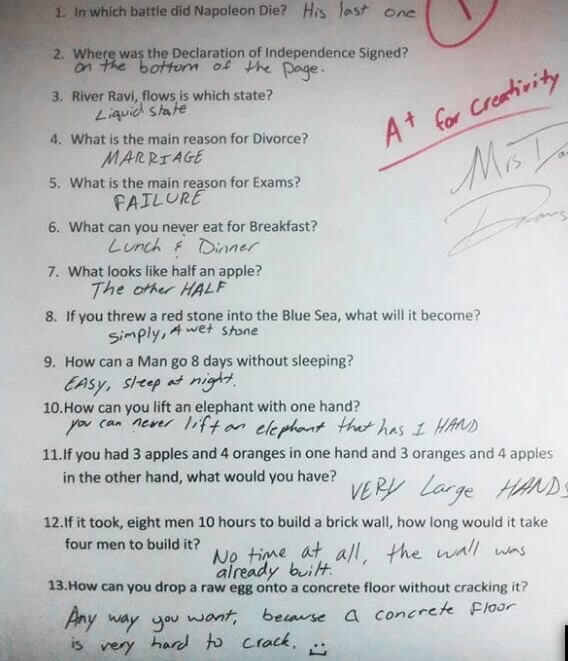 1. In which battle did Napoleon Die? His last one
2. Where was the Declaration of Independence Signed?
on the bottom of the page.
3. River Ravi, flows is which state?
Liquid state
A+ for Creativity
4. What is the main reason for Divorce?
MARRIAGE
Mrs
5. What is the main reason for Exams?
FAILURE
6. What can you never eat for Breakfast?
Lunch & Dinner
7. What looks like half an apple?
The other HALF
8. If you threw a red stone into the Blue Sea, what will it become?
Simply, A wet stone
9. How can a Man go 8 days without sleeping?
EASY, sleep at night.
10.How can you lift an elephant with one hand?
you can never lift an elephant that has 1 HAND
11.If you had 3 apples and 4 oranges in one hand and 3 oranges and 4 apples
in the other hand, what would you have?
VERY Large HANDS
12.If it took, eight men 10 hours to build a brick wall, how long would it take
four men to build it?
No time at all, the wall was
already built.
13.How can you drop a raw egg onto a concrete floor without cracking it?
Any way you want, because a concrete floor
is very hard to crack.